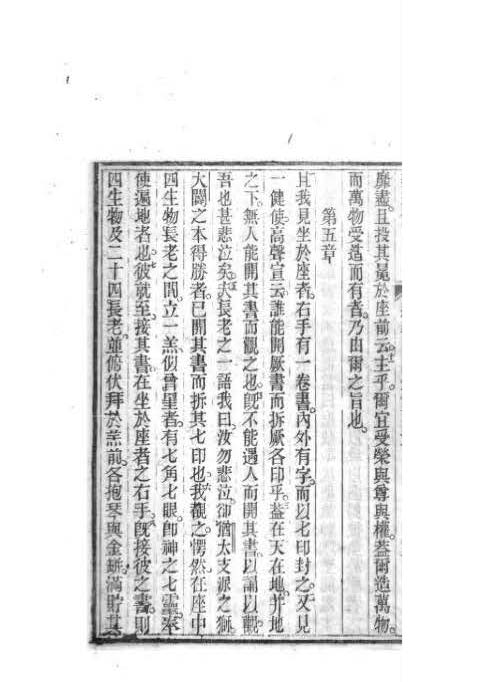 靡盡。且投其冕於座前云。主乎。爾宜受榮與尊與權。葢爾造萬物。
而萬物受造而有者。乃由爾之旨也。
第五章
且我見坐於座者。右手有一卷書。內外有字。而以七印封之。又見
一健使高聲宣云。誰能開厥書而拆厥各印乎。葢在天在地。并地
之下。無人能開其書而觀之也。旣不能遇人而開其書。以誦以觀。
吾也甚悲泣矣。夫長老之一語我曰。汝勿悲泣。卻猶太支派之獅。
大闢之本得勝者。已開其書而拆其七印也。我觀之。愕然在座中
四生物長老之間。立一羔。似曾宰者。有七角七眼。卽神之七靈。奉
使遍地者也。彼就至。接其書。在坐於座者之右手。旣接彼之書。則
四生物及二十四長老。並俯伏拜於羔前。各抱琴與金缾。滿貯其